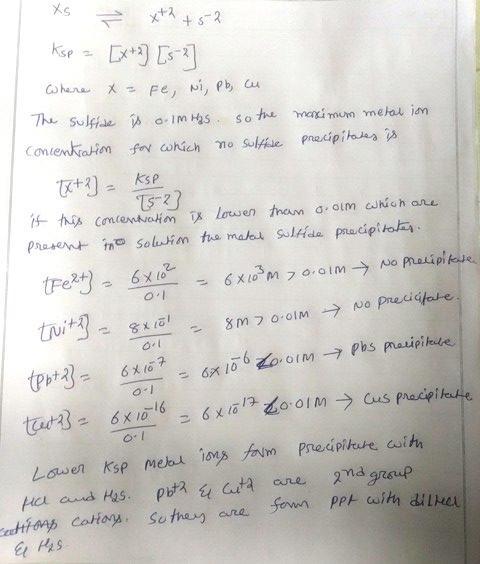 XS ⇌ X+2 + S-2
Ksp = [X+2] [S-2]
where X = Fe, Ni, Pb, Cu
The sulfide is 0.1M H2S. so the maximum metal ion
concentration for which no sulfide precipitates is
[X+2] = Ksp / [S-2]
if this concentration is lower than 0.01M which are
present in solution the metal sulfide precipitates.
[Fe2+] = 6×10^2 / 0.1 = 6×10^3 M > 0.01M → No precipitate
[Ni+2] = 8×10^-1 / 0.1 = 8M > 0.01M → No precicitate.
[Pb+2] = 6×10^-7 / 0.1 = 6×10^-6 < 0.01M → Pbs precipitate
[Cu+2] = 6×10^-16 / 0.1 = 6×10^-17 < 0.01M → Cus precipitate
Lower Ksp metal ions form precipitate with
HCl and H2S. Pb+2 & Cu+2 are 2nd group
cations. so they are form ppt with dil HCl
& H2S.